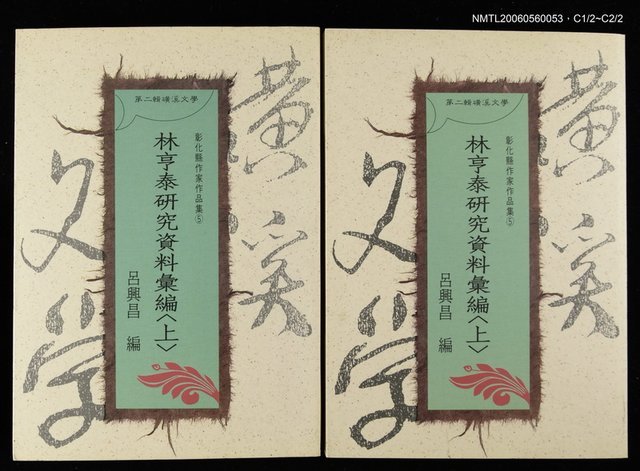 NMTL20060560053，C1/2~C2/2
第二輯磺溪文學
彰化縣作家作品集⑤
林亨泰研究資料彙編〈上〉
呂興昌 編
磺溪
文學
第二輯磺溪文學
彰化縣作家作品集⑤
林亨泰研究資料彙編〈上〉
呂興昌 編
磺溪
文學